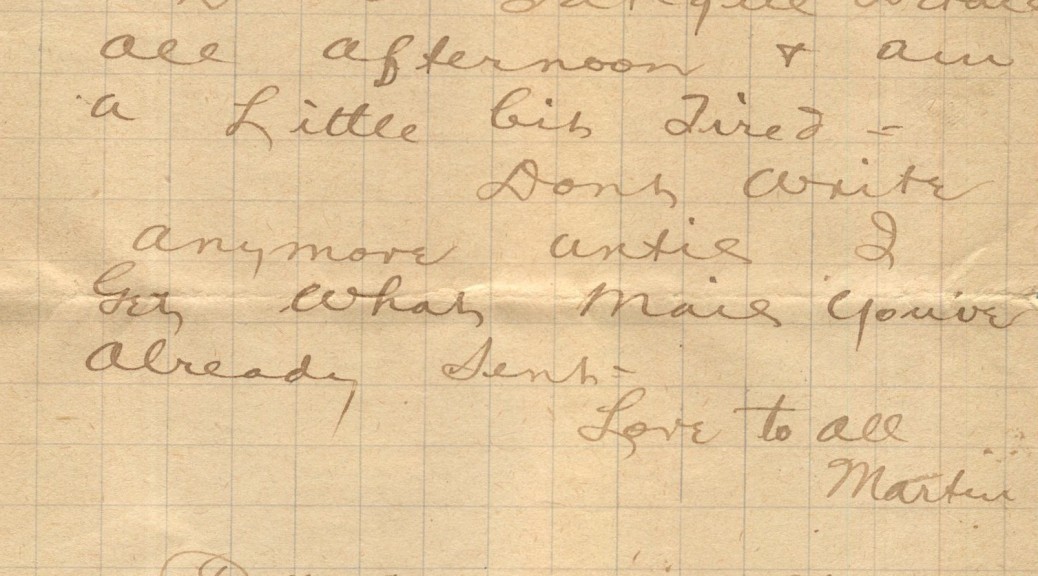 Fatigue
all afternoon & am
a Little bit Tired =
Dont Write
anymore until I
Get What Mail You've
Already Sent -
Love to all
Martin